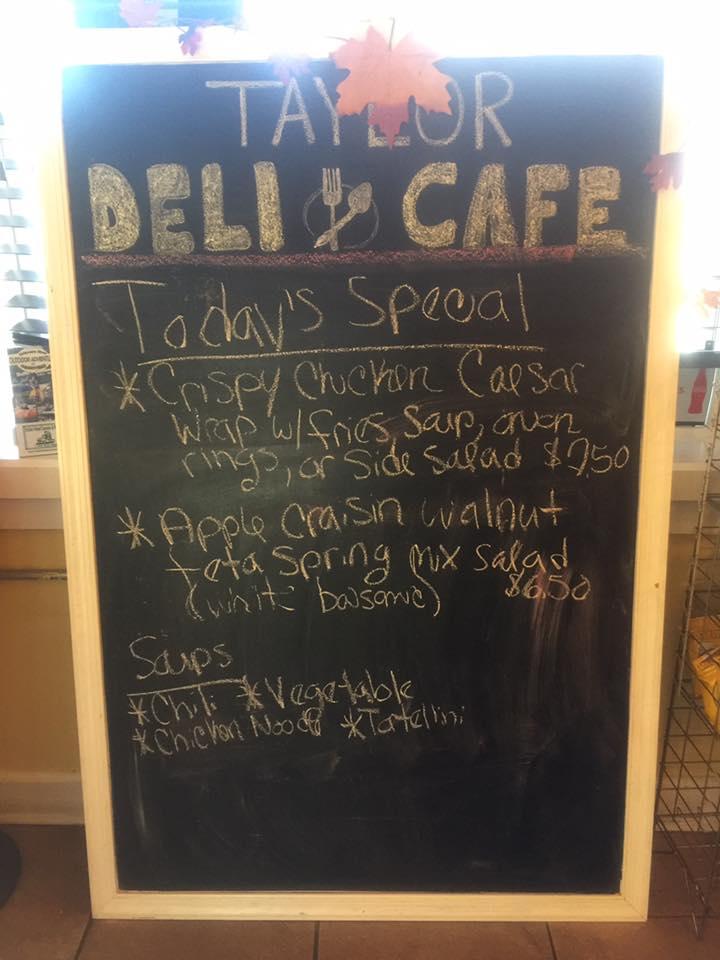 TAYLOR
DELI CAFE
Today's Special
* Crispy Chicken Caesar
Wrap w/fries, Soup, onion
rings, or Side Salad $7.50
* Apple Craisin walnut
feta Spring mix salad
(white balsamic) $6.50
Soups
* Chili * Vegetable
* Chicken Noodle * Tortellini
OUTDOOR ADVENTURE